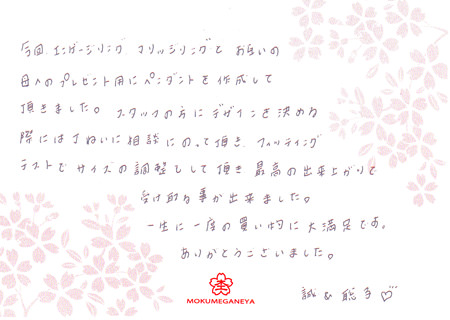 今回、エンゲージリング、マリッジリングと お互いの
母へのプレゼント用にペンダントを作成して
頂きました。 スタッフの方にデザインを決める
際には丁ねいに相談にのって頂き、フィッティング
テストでサイズの調整もして頂き 最高の出来上がりで
受け取る事が出来ました。
一生に一度の買い物に大満足です。
ありがとうございました。
誠 & 聡子♡
MOKUMEGANEYA